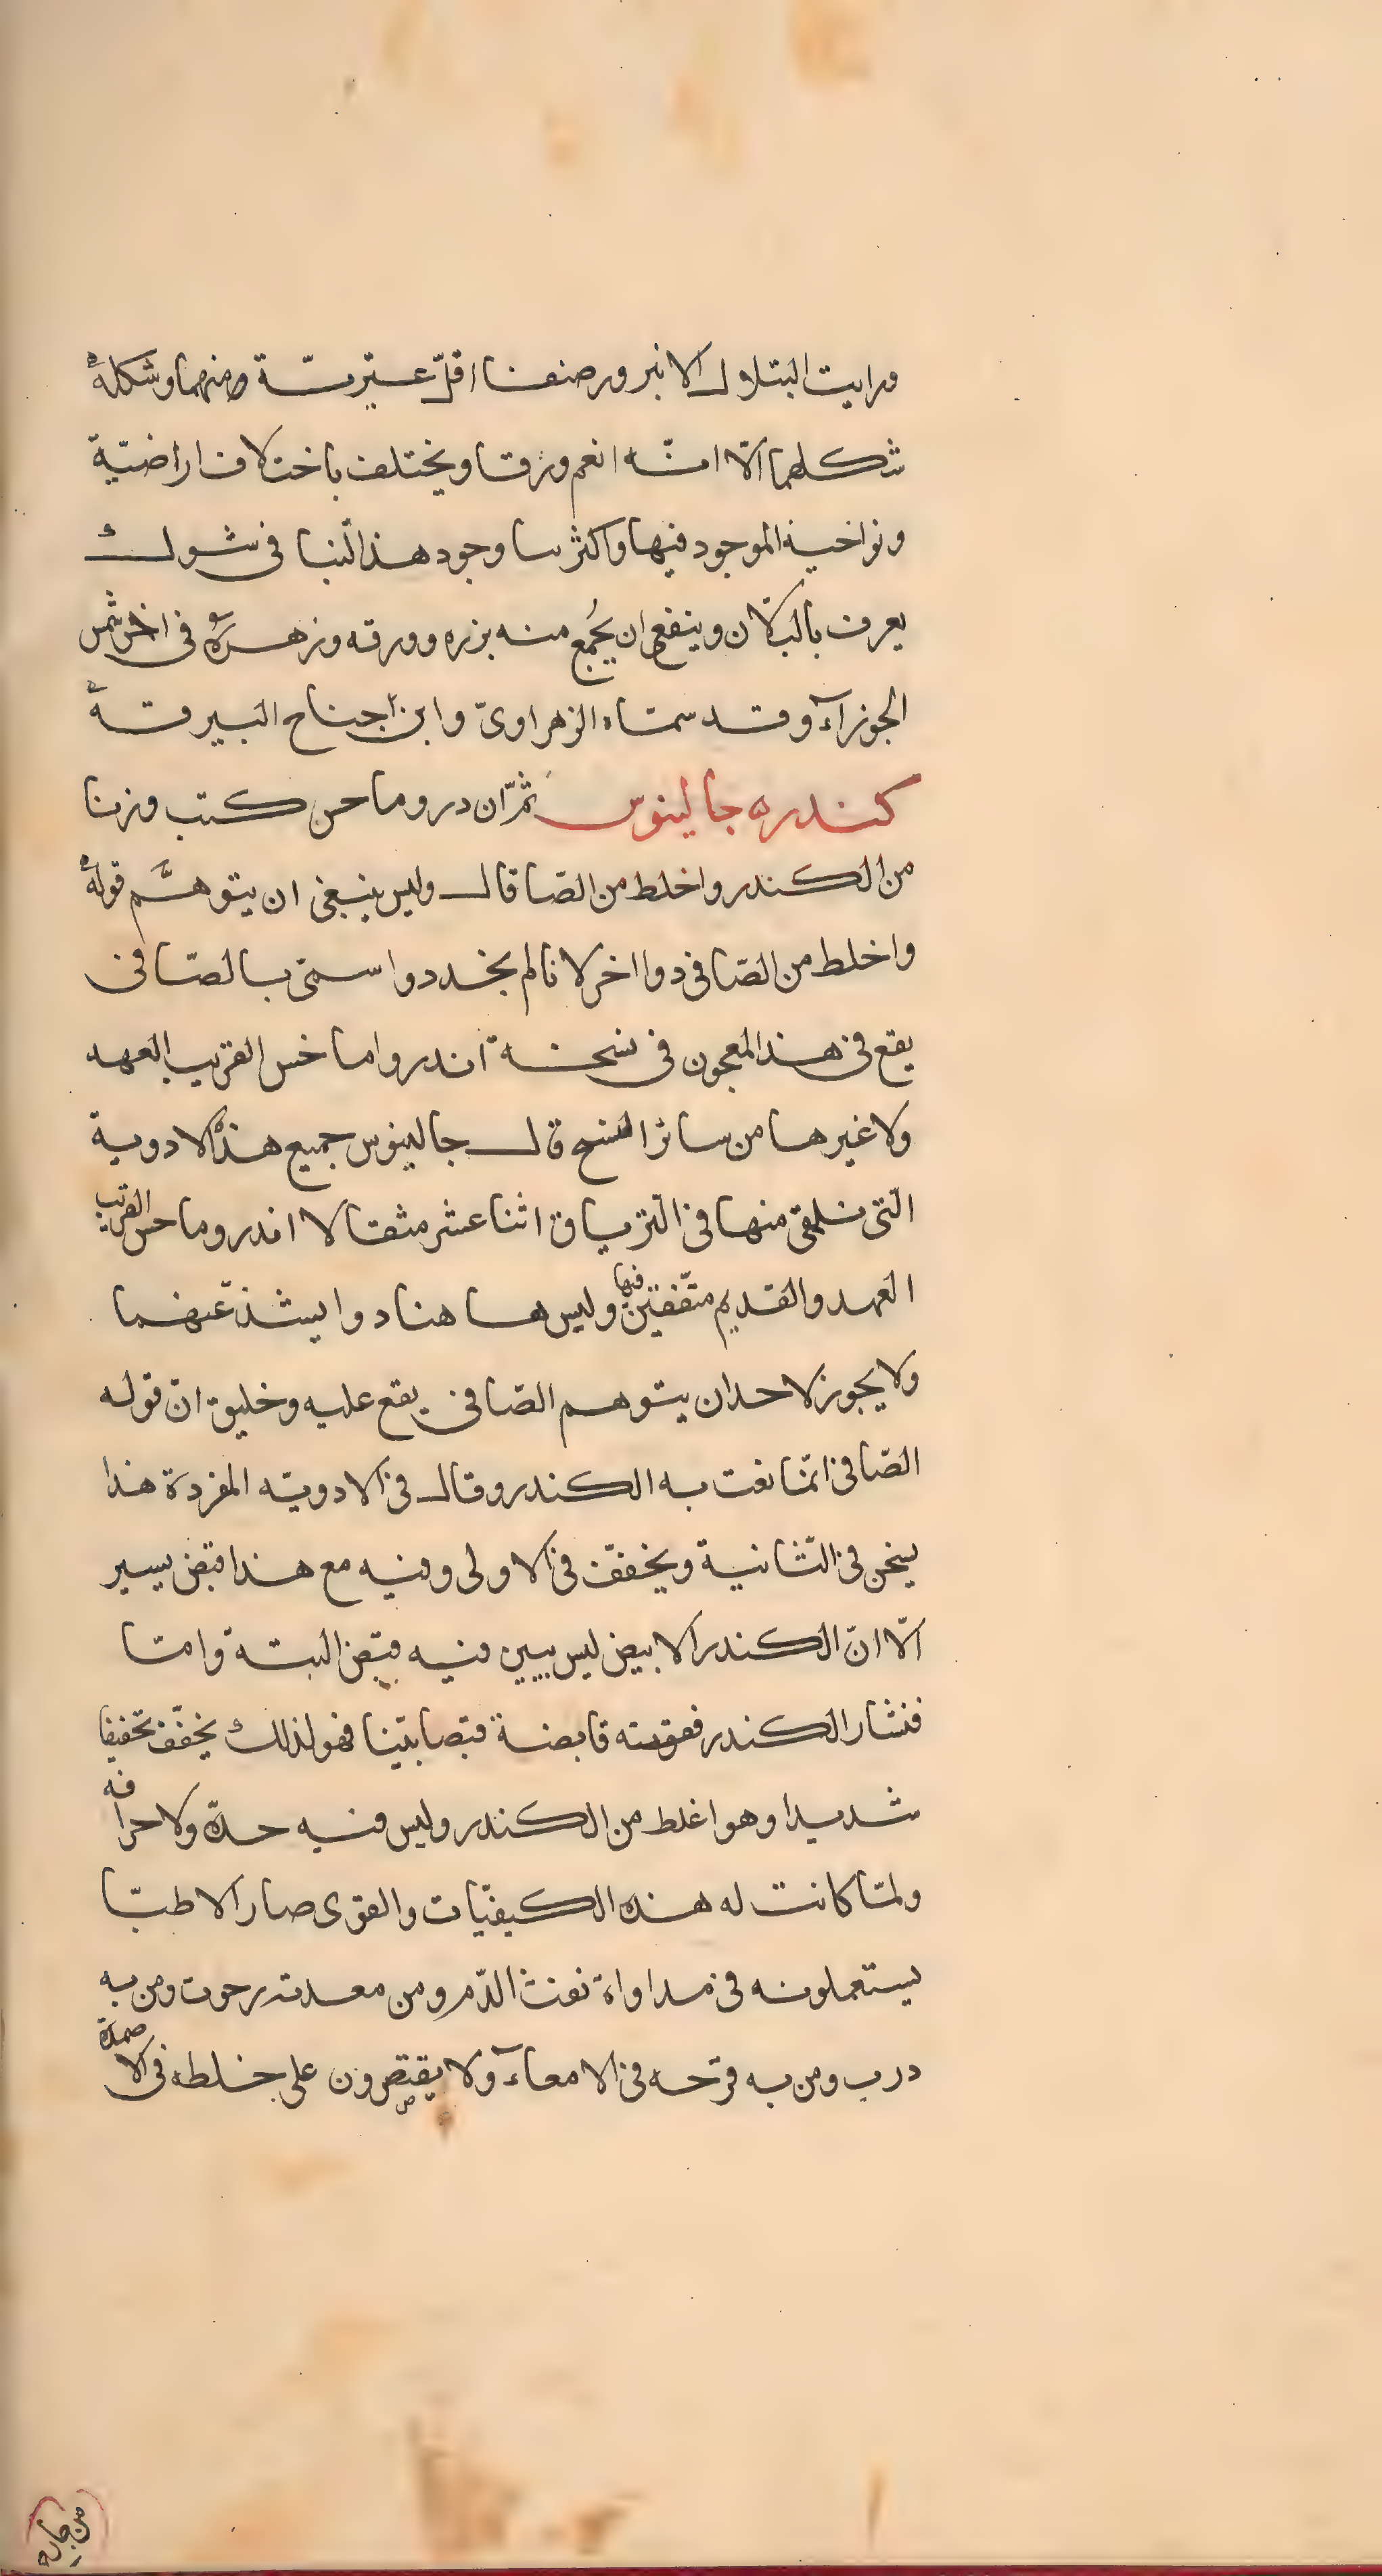 ورايت البتلاول الانبرور صنفا اقل عترىّة منهما وشكلهُ
شكلهما الّا انّه انعم ورقا ويختلف باختلاف اراضيّة
ونواحيه الموجود فيها واكثر ما وجود هذالنبا فى شوك
يعرف بالبكّان وينفع ان يُجمع منه بزره وورقه وزهره فى اخر شمس
الجوزآء وقد سمّاه الزهراوىّ وابن اجناح البيرقة
كندره جالينوس ثمّ ان دروماحس كتب وزنا
من الكندر واخلط من الصّا قال وليس ينبغى ان يتوهّم قوله
واخلط من الصّافى دوا اخر لانا لم نجد دوا سمّى بالصّافى
يقع فى هذ المعجون فى نسخة اندروماخس القريب العهد
ولا غيرها من سائر النسخ قال جالينوس جميع هذه الادوية
الّتى نلقى منها فى التّرياق اثنا عشر مثقالا اندروماحس القريب
العهد والقديم متّفقين فيها وليس هاهنا دوا يشذّ عنهما
ولا يجوز لاحد ان يتوهم الصّافى يقع عليه وخليق انّ قوله
الصّافى انّما نعت به الكندر وقال فى الادويّه المفردة هذا
يسخن فى الثّانية ويخففّ فى الاولى وفيه مع هذا قبض يسير
الّا انّ الكندر الابيض ليس يبين فيه قبض البتة وامّا
قشار الكندر فقوته قابضة قبصا بيّنا فهو لذلك يخفّف تخفيفا
شديدا وهو اغلط من الكندر وليس فيه حدّة ولا حرافه
ولمّا كانت له هذه الكيفيّات والقوى صار الاطبّا
يستعملونه فى مداواة نفث الدّم ومن معدته رحوت ومن به
درب ومن به قرّحه فى الامعآء ولا يقتصرون على خلطه فى الاضمدة